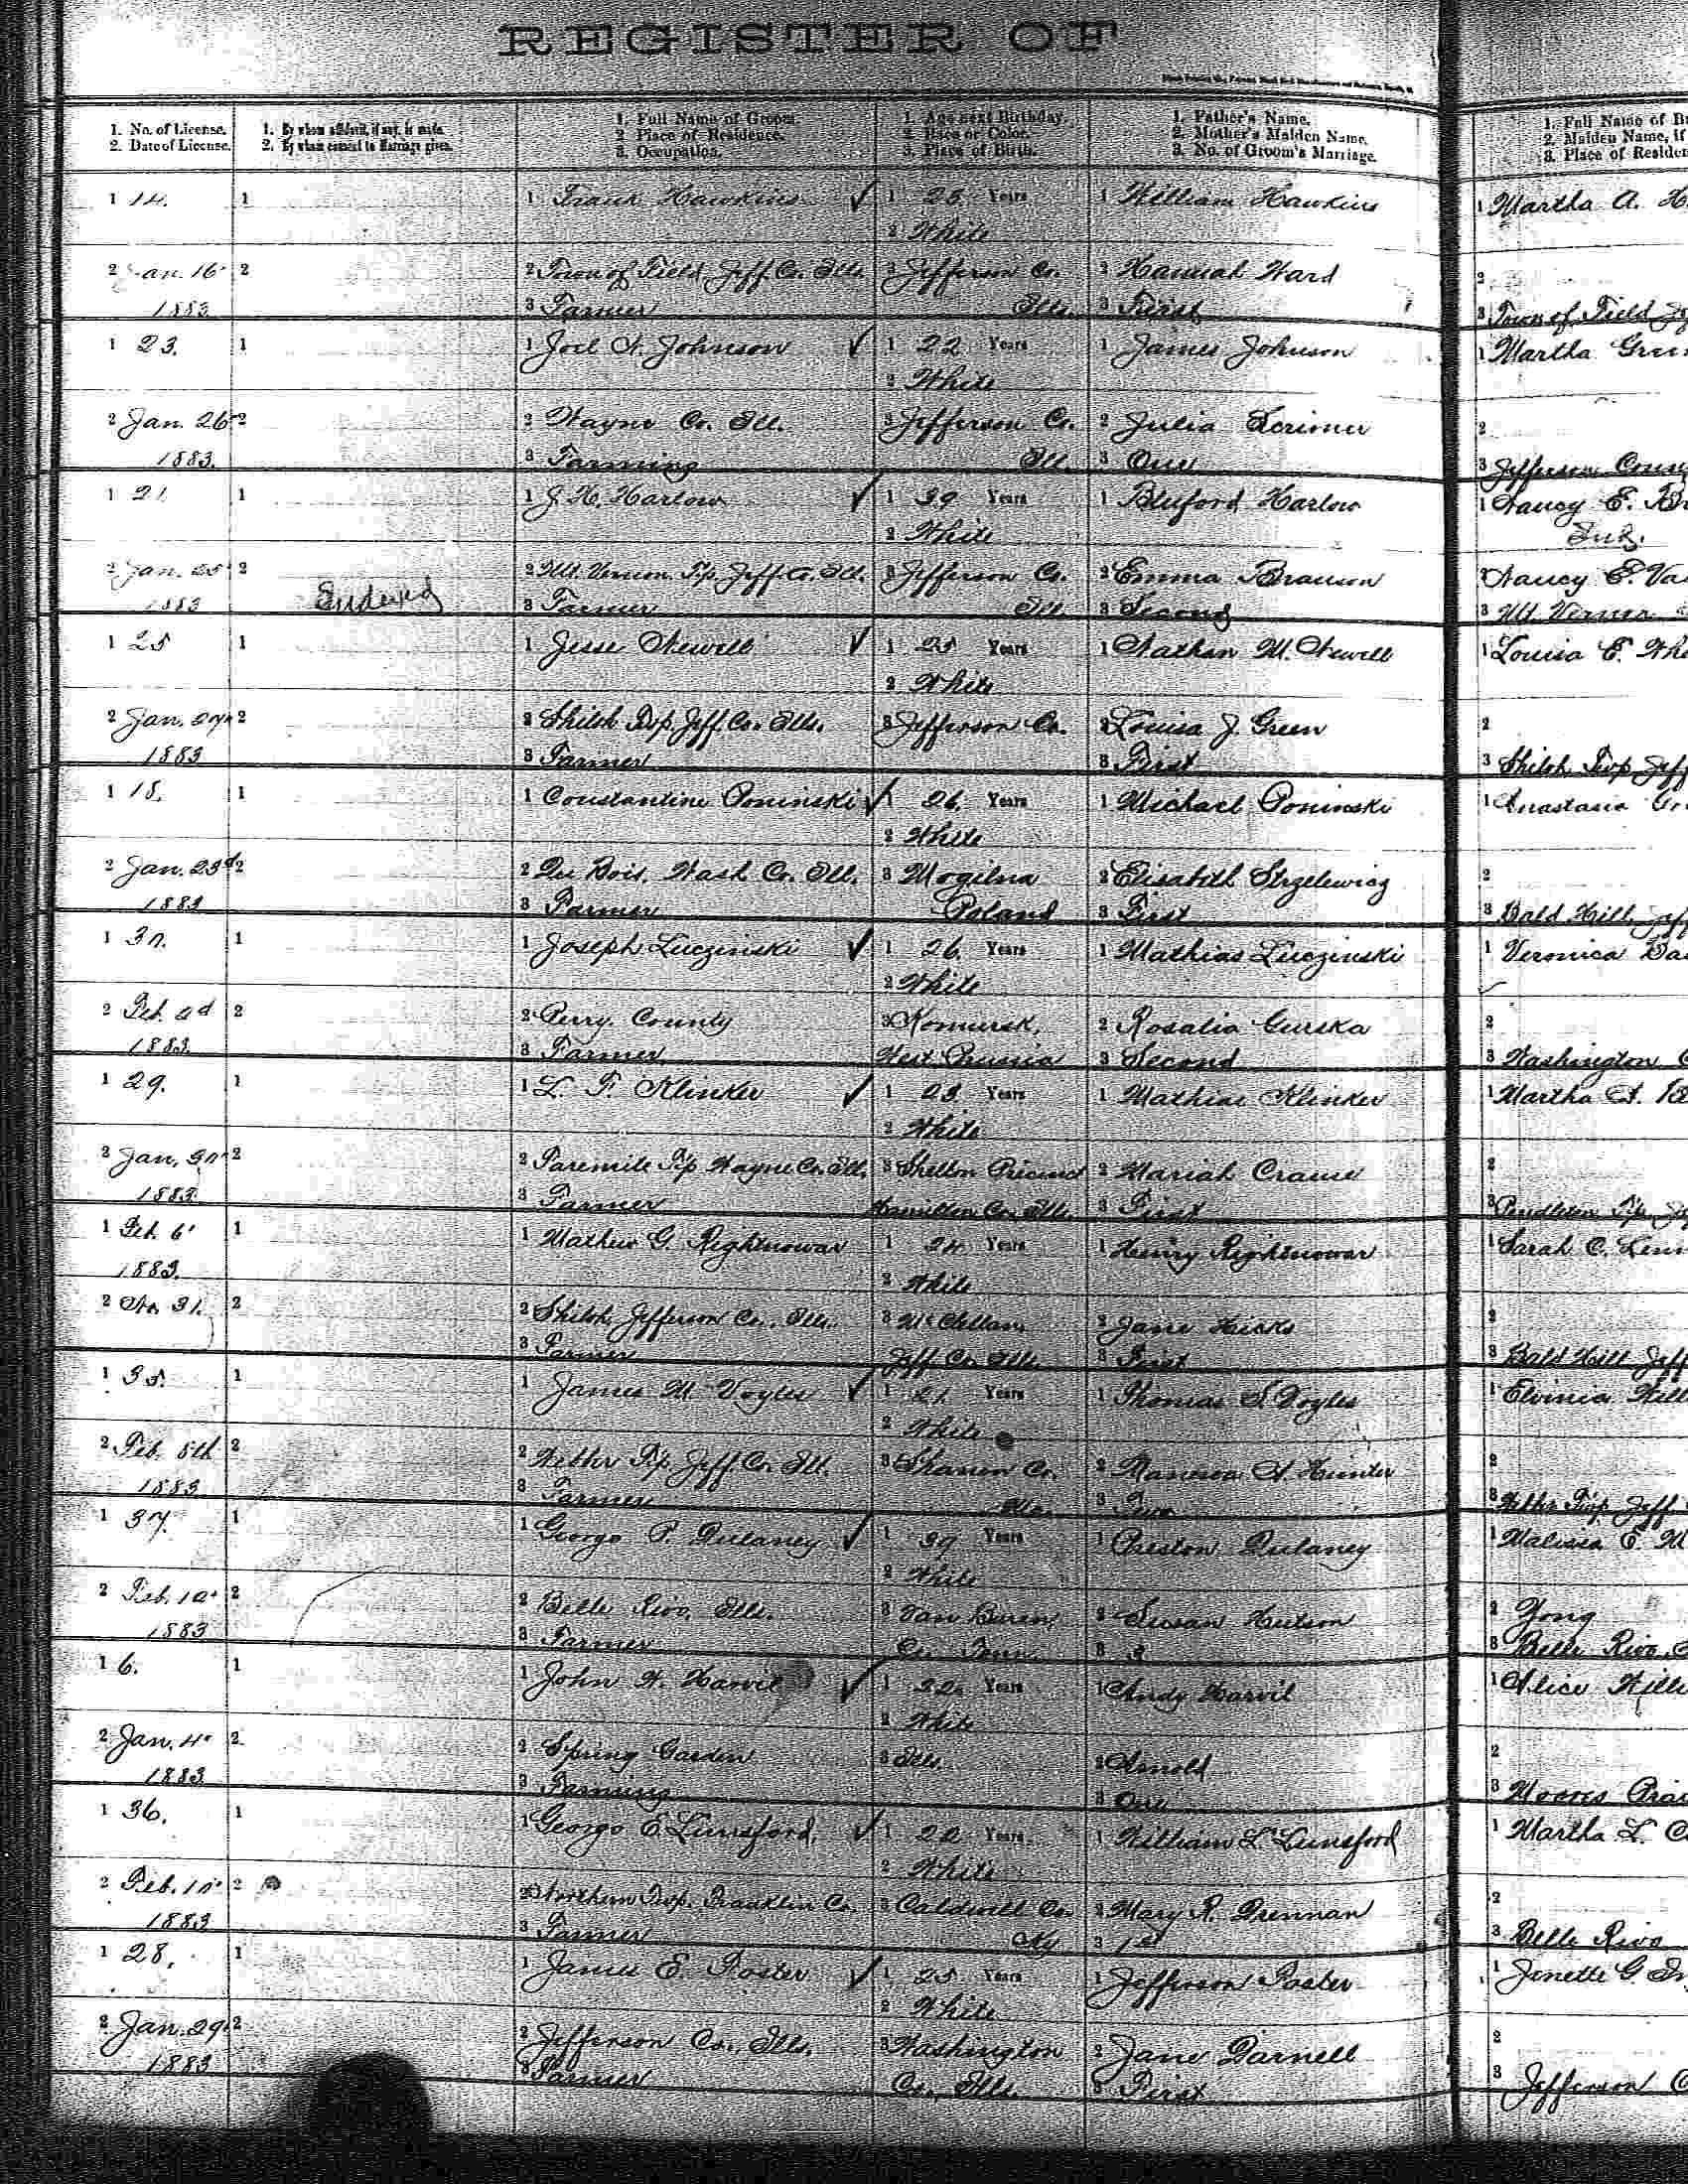 REGISTER OF
1. No. of License.
2. Date of License.
1. By whom affidavit, if any, is made.
2. By whom consent to Marriage given.
1. Full Name of Groom.
2. Place of Residence.
3. Occupation.
1. Age next Birthday.
2. Race or Color.
3. Place of Birth.
1. Father's Name.
2. Mother's Maiden Name.
3. No. of Groom's Marriage.
1. Full Name of B
2. Maiden Name, if
3. Place of Residen
1 14. 1 1 Frank Hawkins ✓ 1 23 Years 1 William Hawkins 1 Martha A. H
2 White
2 Jan. 16 2 2 Town of Field, Jeff. Co. Ills. 3 Jefferson Co. 2 Hannah Ward 2
1883 3 Farmer Ills. 3 First 3 Town of Field
1 23. 1 1 Joel Johnson ✓ 1 22 Years 1 James Johnson 1 Martha Green
2 White
2 Jan. 26 2 2 Wayne Co. Ill. 3 Jefferson Co. 2 Julia 2
1883. 3 Farming Ill. 3 One 3 Jefferson Coun
1 21 1 1 J. H. Harlow ✓ 1 39 Years 1 Bluford Harlow 1 Nancy E.
2 White
2 Jan. 25 2 2 Mt. Vernon Tp. Jeff. Co. Ill. 3 Jefferson Co. 2 Emma Branson 2 Nancy E. Va
1883 3 Farmer Ill. 3 Second 3 Mt. Vernon
1 25 1 1 Jesse Newell ✓ 1 25 Years 1 Nathan M. Newell 1 Louisa E. Whi
2 White
2 Jan. 27 2 2 Shiloh Twp. Jeff. Co. Ills. 3 Jefferson Co. 2 Louisa J. Green 2
1883 3 Farmer 3 First 3 Shiloh Twp Jeff
1 18. 1 1 Constantine Poninski ✓ 1 26. Years 1 Michael Poninski 1 Anastasia
2 White
2 Jan. 23d 2 2 Du Bois, Wash Co. Ill. 3 Mogilna 2 Elisabeth Strzelewicz 2
1883 3 Farmer Poland 3 First 3 Bald Hill, Jeff
1 30. 1 1 Joseph Luczinski ✓ 1 26 Years 1 Mathias Luczinski 1 Veronica
2 White
2 Feb. 2d 2 2 Perry County 3 Komorsk, 2 Rosalia Gurska 2
1883. 3 Farmer West Prussia 3 Second 3 Washington
1 29. 1 1 L. F. Klinker ✓ 1 23 Years 1 Mathias Klinker 1 Martha
2 White
2 Jan. 30 2 2 Wayne Co. Ill. 3 Shelton Precinct 2 Mariah 2
1883. 3 Farmer Hamilton Co. Ills. 3 First 3 Pendleton Tp.
1 Feb. 6 1 1 Mathew G. Rightnowar 1 24 Years 1 Henry Rightnowar 1 Sarah C.
1883. 2 White
2 No. 31. 2 2 Shiloh, Jefferson Co., Ills. 3 McClellan, 2 Jane Hicks 2
3 Farmer Jeff. Co. Ills. 3 First 3 Bald Hill Jeff
1 35. 1 1 James M. Voyles ✓ 1 21 Years 1 Thomas S. Voyles 1 Elvinia
2 White
2 Feb. 8th 2 2 Webber Tp. Jeff. Co. Ill. 3 Co. 2 Hunter 2
1883. 3 Farmer 3 Two 3 Webber Twp. Jeff
1 37. 1 1 George P. Dulaney ✓ 1 39 Years 1 Preston Dulaney 1 Malissa E.
2 White
2 Feb. 10 2 2 Belle Rive, Ills. 3 Van Buren, 2 Susan Hutson 2 Yong
1883 3 Farmer Co. Tenn. 3 3 Belle Rive,
1 6. 1 1 John H. Harvil ✓ 1 22 Years 1 Andy Harvil 1 Alice
2 White
2 Jan. 4 2 2 Spring Garden 3 Ills. 2 Arnold 2
1883 3 Farming 3 One 3 Moores Prai
1 36. 1 1 George E. Lunsford, ✓ 1 22 Years 1 William L. Lunsford 1 Martha L. C
2 White
2 Feb. 10 2 2 Northern Twp. Franklin Co. 3 Caldwell Co. 2 Mary R. Drennan 2
1883 3 Farmer Ky 3 1st 3 Belle Rive
1 28. 1 1 James E. Foster ✓ 1 25 Years 1 Jefferson Foster 1 Jenette G
2 White
2 Jan. 29 2 2 Jefferson Co., Ills. 3 Washington 2 Jane Darnell 2
1883 3 Farmer Co. Ills. 3 First 3 Jefferson C